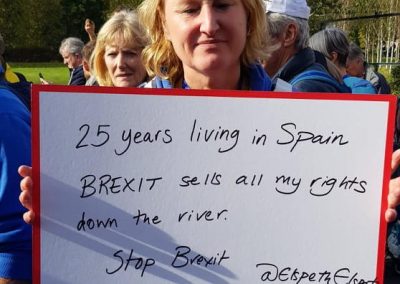 25 years living in Spain
BREXIT sells all my rights
down the river.
Stop Brexit